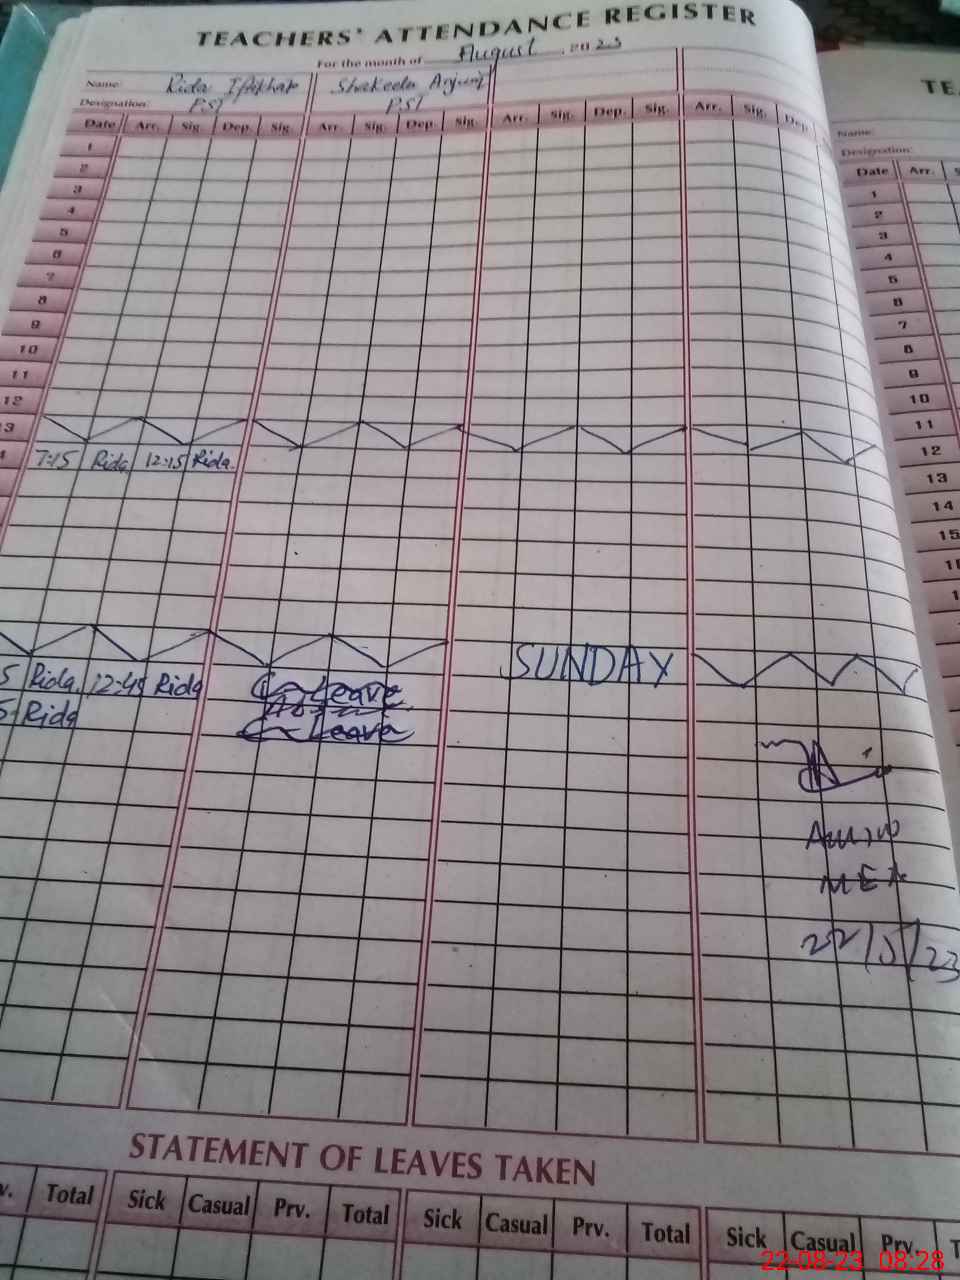 TEACHERS' ATTENDANCE REGISTER
For the month of August 2023
Name: Rida Iftikhar Shakeela Anjum
Designation: PST PST
Date Arr. Sig. Dep. Sig. Arr. Sig. Dep. Sig. Arr. Sig. Dep. Sig. Arr. Sig. Dep.
1
2
3
4
5
6
7
8
9
10
11
12
3
7:15 Rida 12:15 Rida.
SUNDAY
5 Rida. 12:45 Rida Leave
5 Rida Leave
MEA
STATEMENT OF LEAVES TAKEN
v. Total Sick Casual Prv. Total Sick Casual Prv. Total Sick Casual Prv.
TE
Name:
Designation:
Date Arr.
1
2
3
4
5
6
7
8
9
10
11
12
13
14
15
22-08-23 08:28